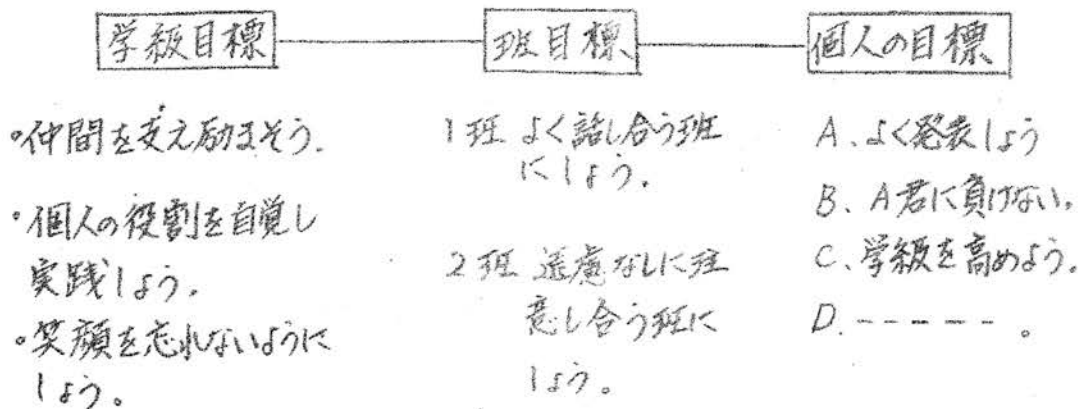 学級目標 班目標 個人の目標
・仲間を支え励まそう.
・個人の役割を自覚し
実践しよう.
・笑顔を忘れないように
しよう。
1班 よく話し合う班
にしよう.
2班 遠慮なしに注
意し合う班に
しよう。
A、よく発表しよう
B、A君に負けない。
C、学級を高めよう。
D.-----。